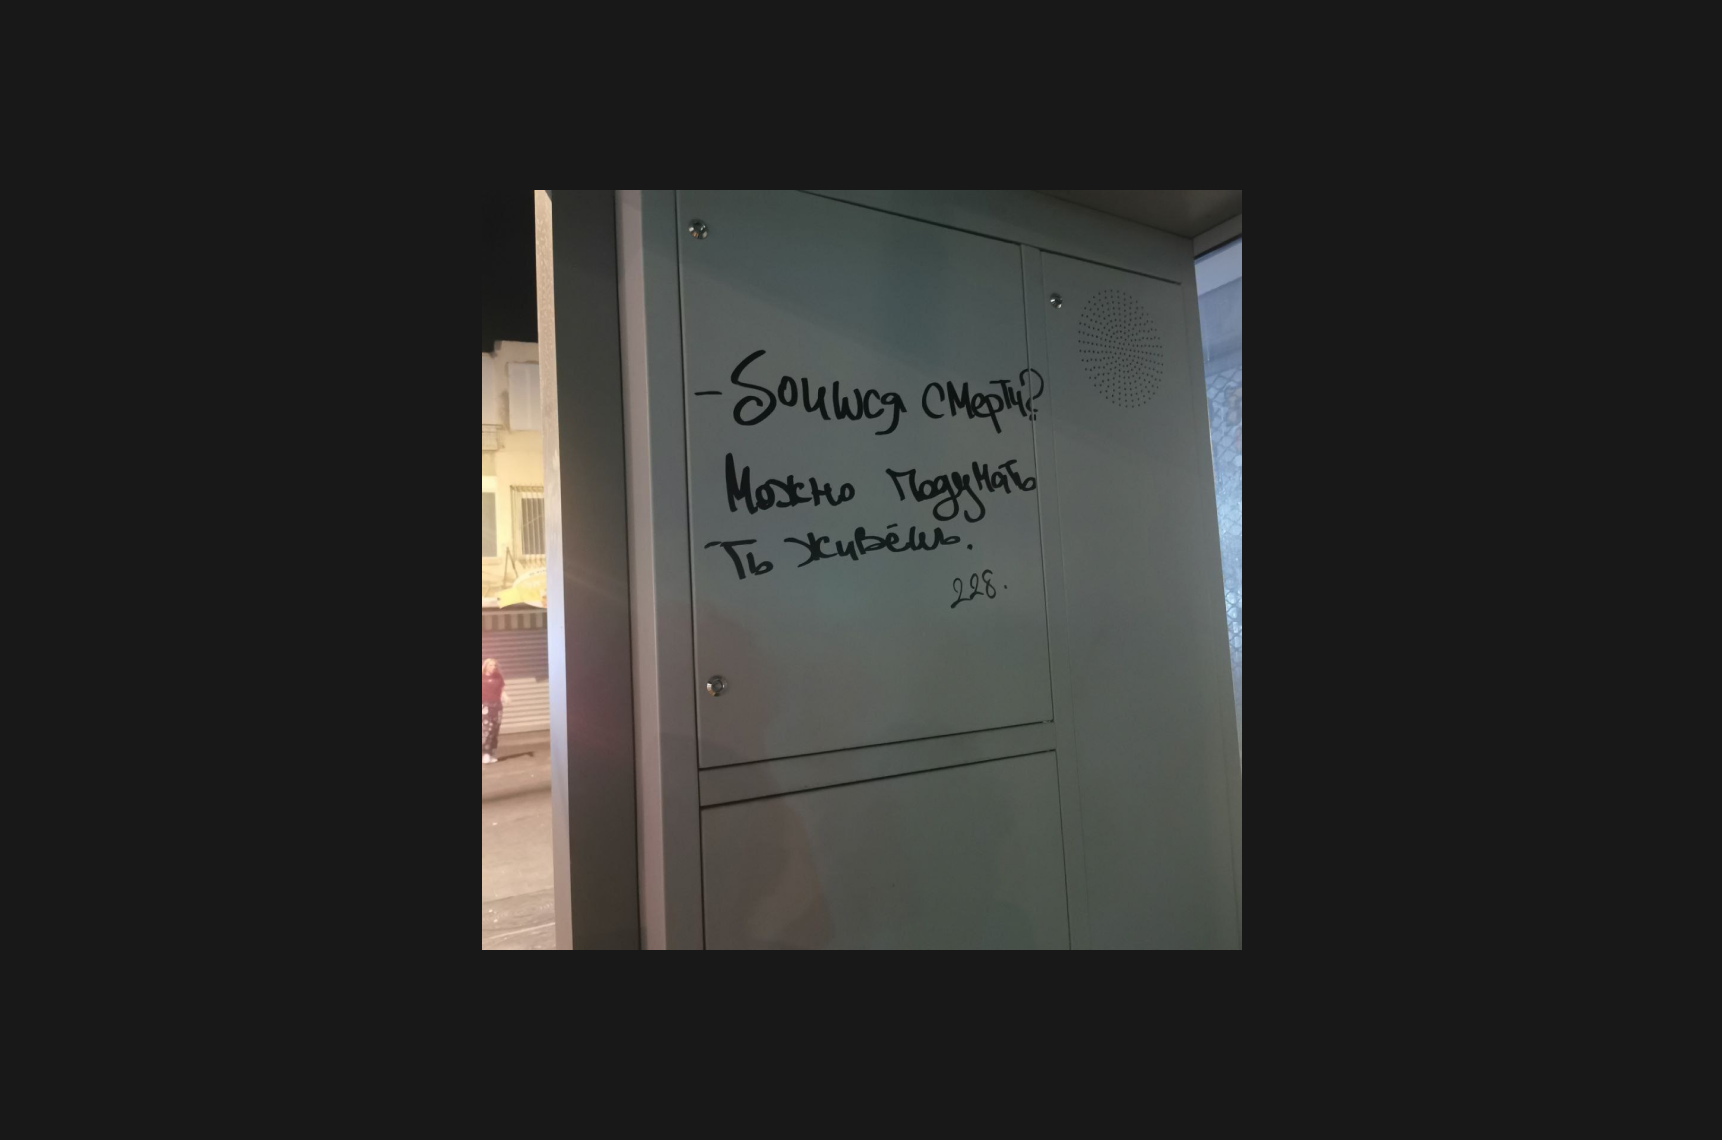 - боишся смерти?
Можно подумать
ть живёшь.
228.